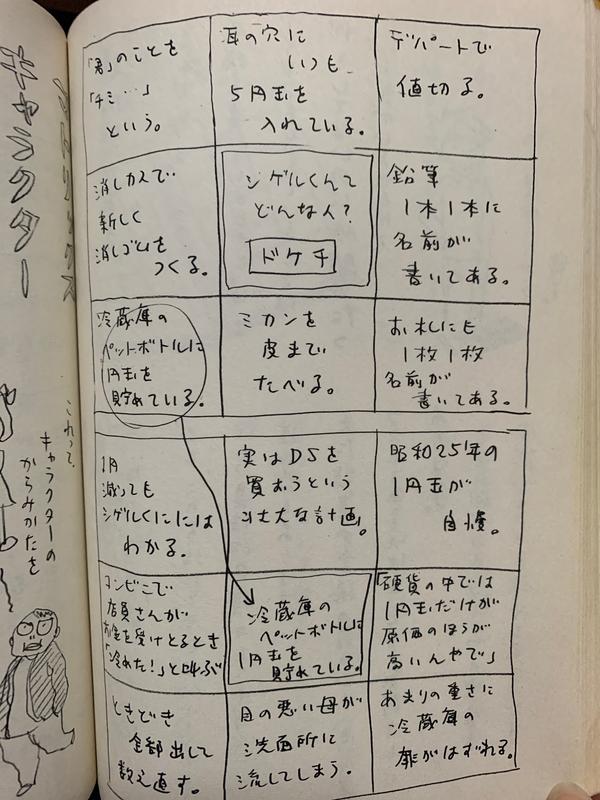 キャラクター
マトリックス
これって、
キャラクターの
からみかたを
「君」のことを
「チミ…」
という。
耳の穴に
いつも
5円玉を
入れている。
デパートで
値切る。
消しカスで
新しく
消しゴムを
つくる。
シゲルくんて
どんな人?
ドケチ
鉛筆
1本1本に
名前が
書いてある。
冷蔵庫の
ペットボトルに
1円玉を
貯めている。
ミカンを
皮まで
たべる。
お札にも
1枚1枚
名前が
書いてある。
1円
減っても
シゲルくんには
わかる。
実はDSを
買おうという
壮大な計画。
昭和25年の
1円玉が
自慢。
コンビニで
店員さんが
お金を受けとるとき
「冷めた!」と叫ぶ
冷蔵庫の
ペットボトルに
1円玉を
貯めている。
「硬貨の中では
1円玉だけが
原価のほうが
高いんやで」
ときどき
全部出して
数え直す。
目の悪い母が
洗面所に
流してしまう。
あまりの重さに
冷蔵庫の
扉がはずれる。